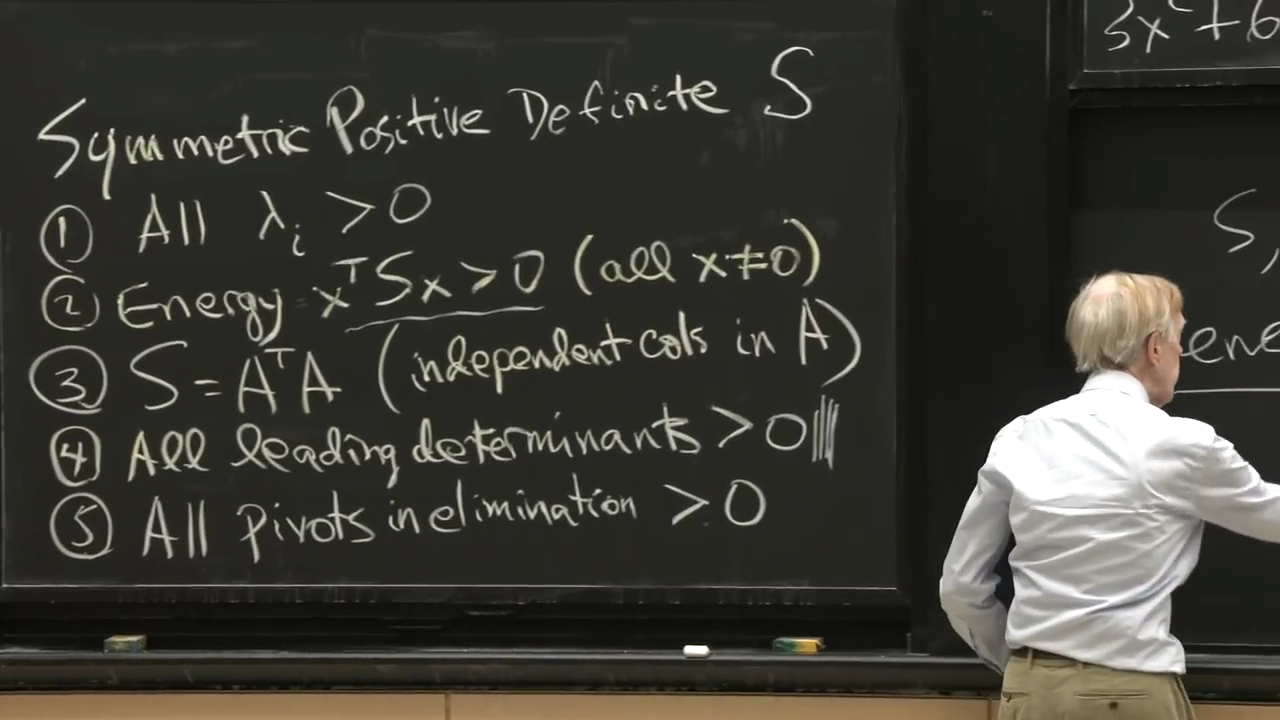 Symmetric Positive Definite S
① All λᵢ > 0
② Energy = xᵀSx > 0 (all x ≠ 0)
③ S = AᵀA (independent cols in A)
④ All leading determinants > 0
⑤ All pivots in elimination > 0
3x² + 6
S,
ene